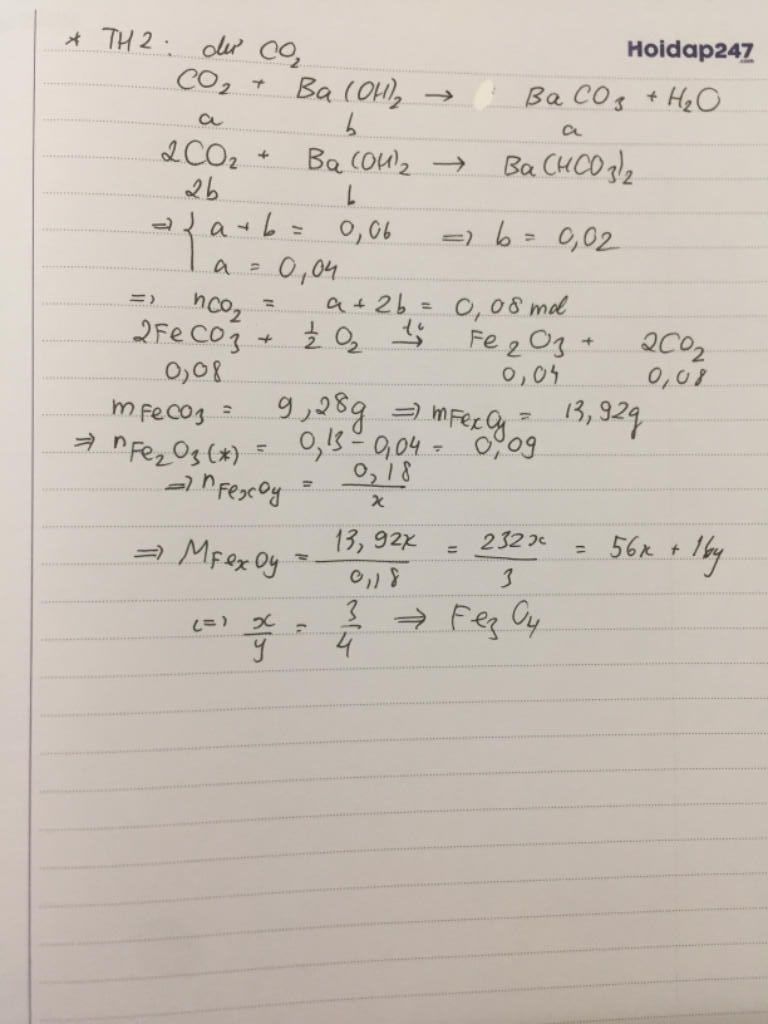 * TH2: dư CO₂
Hoidap247
CO₂ + Ba(OH)₂ → BaCO₃ + H₂O
a b a
2CO₂ + Ba(OH)₂ → Ba(HCO₃)₂
2b b
⇒ { a + b = 0,06 ⇒ b = 0,02
a = 0,04
⇒ nCO₂ = a + 2b = 0,08 mol
2FeCO₃ + ½ O₂ →(t°) Fe₂O₃ + 2CO₂
0,08 0,04 0,08
mFeCO₃ = 9,28g ⇒ mFexOy = 13,92g
⇒ nFe₂O₃(*) = 0,13 - 0,04 = 0,09
⇒ nFexOy = 0,18/x
⇒ MFexOy = 13,92x/0,18 = 232x/3 = 56x + 16y
<=> x/y = 3/4 ⇒ Fe₃O₄